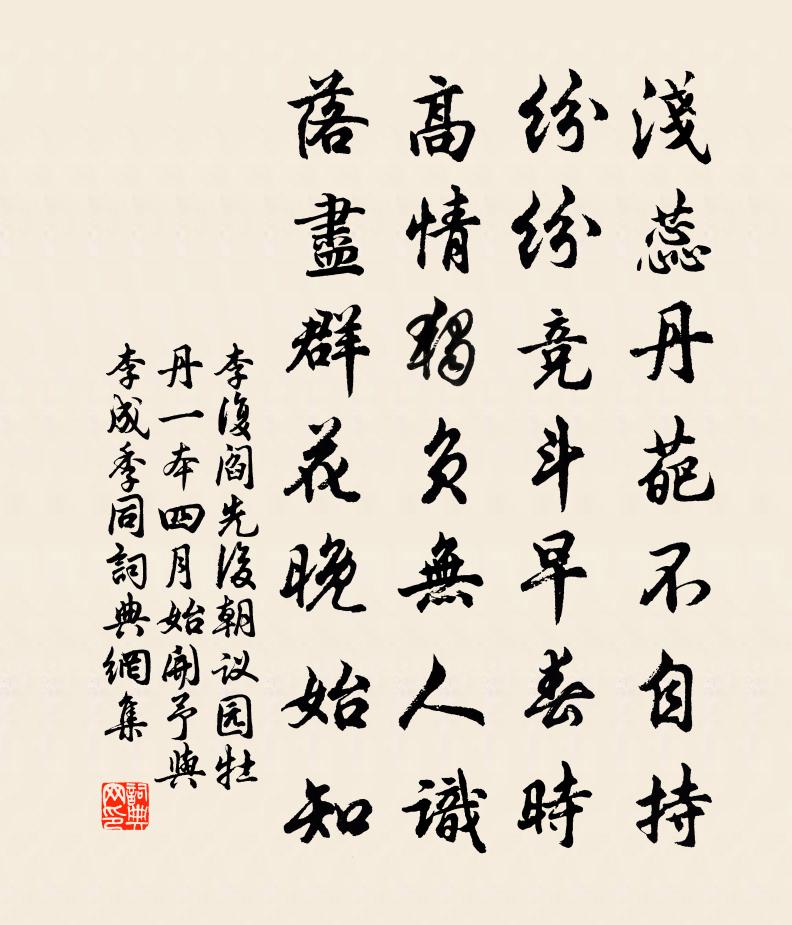 淺蕊丹葩不自持
紛紛競斗早春時
高情獨負無人識
落盡群花晚始知
李復閻先後朝议园牡
丹一本四月始開予與
李成季同詞典網集
詞典网印